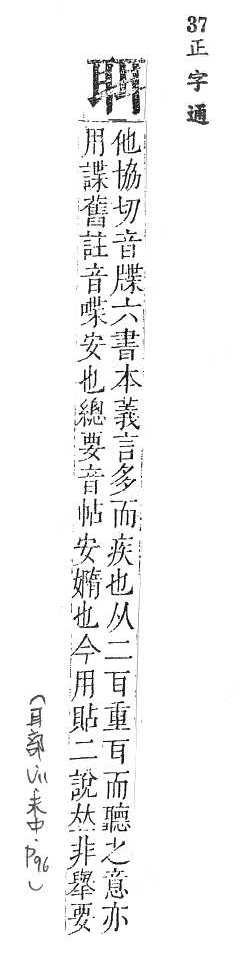 37正字通
聑
他協切音牒六書本義言多而疾也从二耳重耳而聽之意亦
用諜舊註音喋安也總要音帖安媠也今用貼二說𠀤非舉要
(耳部 VII 未中. P96)